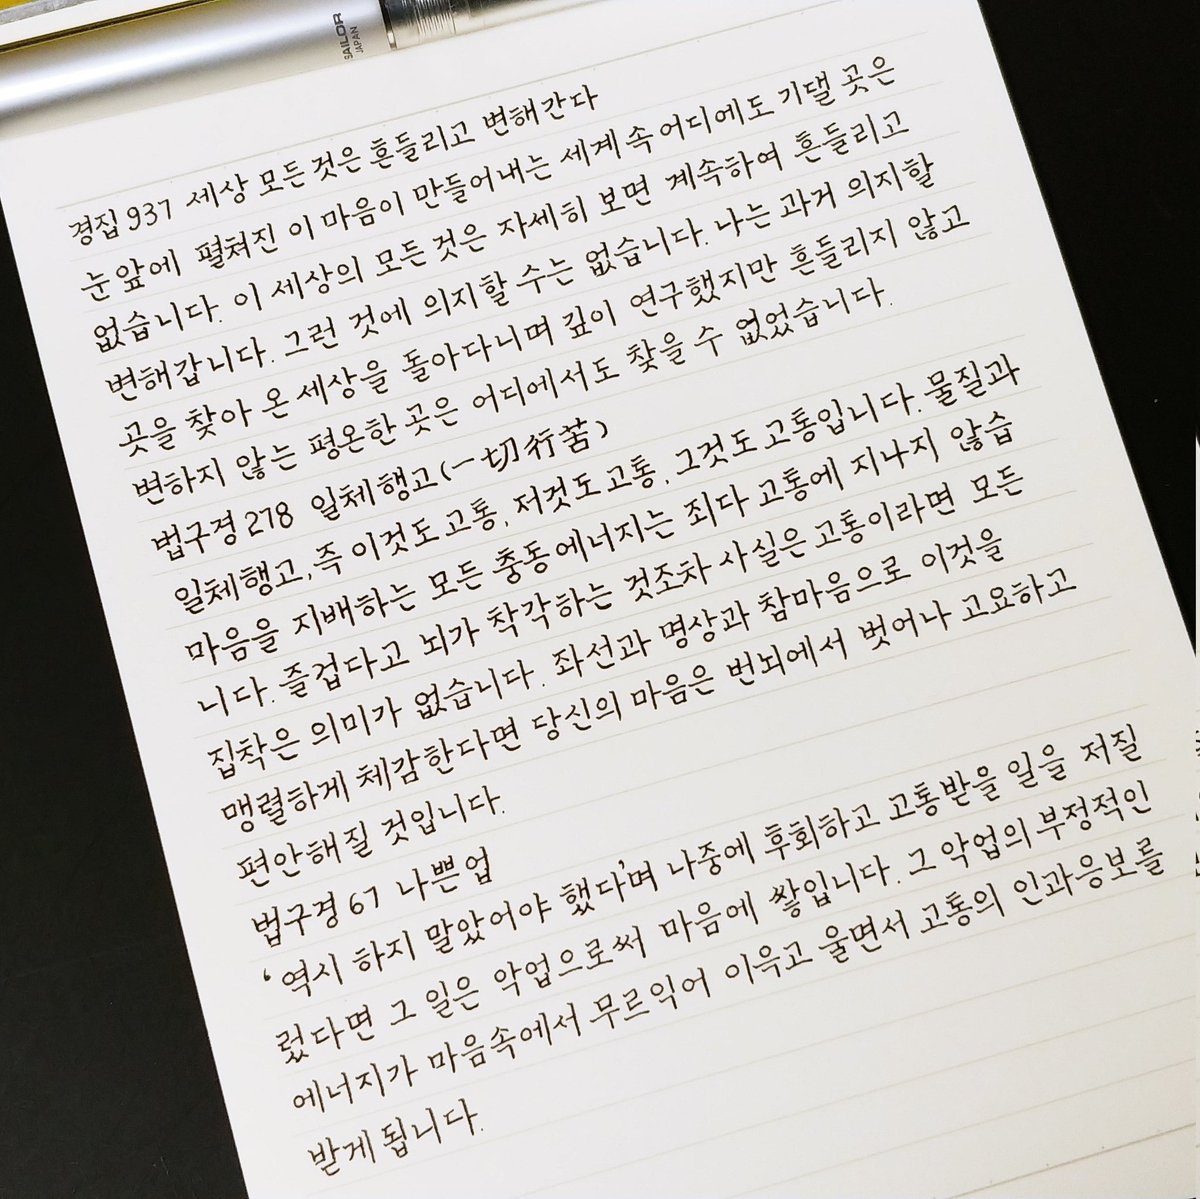 SAILOR
JAPAN
경집 937 세상 모든 것은 흔들리고 변해간다
눈앞에 펼쳐진 이 마음이 만들어내는 세계 속 어디에도 기댈 곳은
없습니다. 이 세상의 모든 것은 자세히 보면 계속하여 흔들리고
변해갑니다. 그런 것에 의지할 수는 없습니다. 나는 과거 의지할
곳을 찾아 온 세상을 돌아다니며 깊이 연구했지만 흔들리지 않고
변하지 않는 평온한 곳은 어디에서도 찾을 수 없었습니다.
법구경 278 일체행고(一切行苦)
일체행고, 즉 이것도 고통, 저것도 고통, 그것도 고통입니다. 물질과
마음을 지배하는 모든 충동에너지는 죄다 고통에 지나지 않습
니다. 즐겁다고 뇌가 착각하는 것조차 사실은 고통이라면 모든
집착은 의미가 없습니다. 좌선과 명상과 참마음으로 이것을
맹렬하게 체감한다면 당신의 마음은 번뇌에서 벗어나 고요하고
편안해질 것입니다.
법구경 67 나쁜업
'역시 하지 말았어야 했다'며 나중에 후회하고 고통받을 일을 저질
렀다면 그 일은 악업으로써 마음에 쌓입니다. 그 악업의 부정적인
에너지가 마음속에서 무르익어 이윽고 울면서 고통의 인과응보를
받게 됩니다.